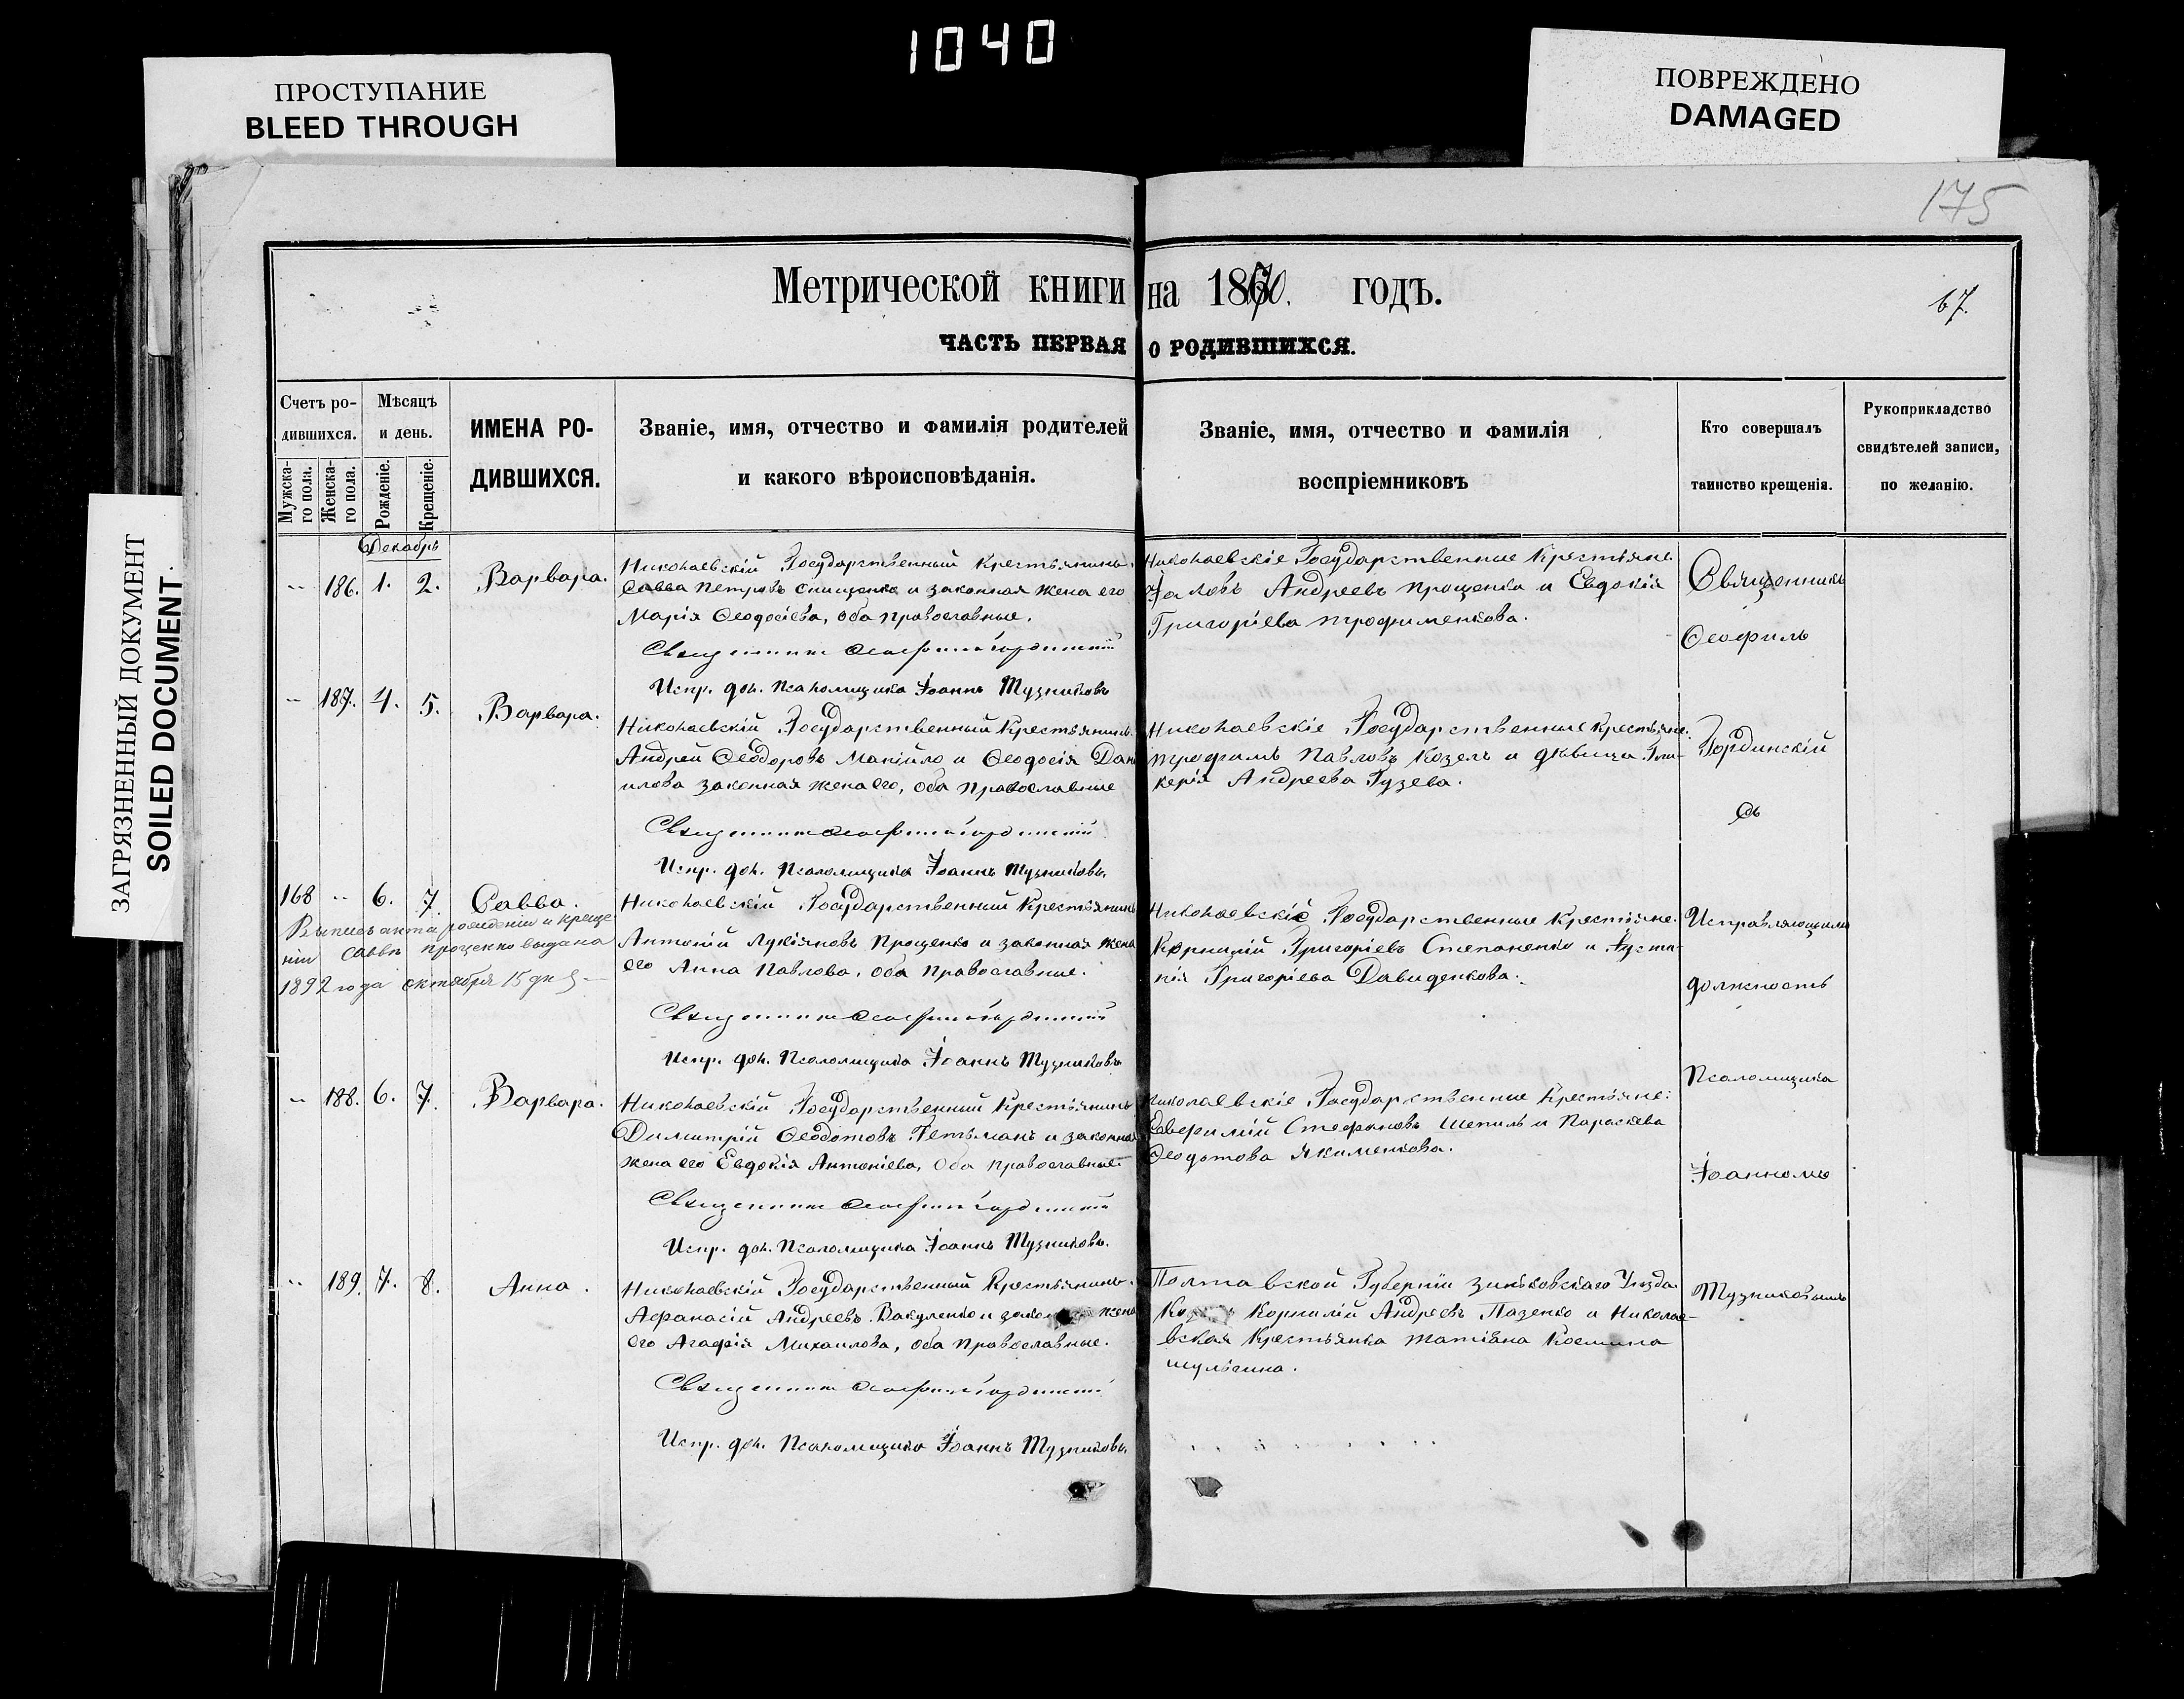 1040
ПРОСТУПАНИЕ
BLEED THROUGH
ПОВРЕЖДЕНО
DAMAGED
ЗАГРЯЗНЕННЫЙ ДОКУМЕНТ
SOILED DOCUMENT
175
Метрической книги на 1870. годъ.
67.
ЧАСТЬ ПЕРВАЯ О РОДИВШИХСЯ.
Счетъ ро-
дившихся.
Мужска-
го пола.
Женска-
го пола.
Мѣсяцъ
и день.
Рожденіе.
Крещеніе.
ИМЕНА РО-
ДИВШИХСЯ.
Званіе, имя, отчество и фамилія родителей
и какого вѣроисповѣданія.
Званіе, имя, отчество и фамилія
воспріемниковъ
Кто совершалъ
таинство крещенія.
Рукоприкладство
свидѣтелей записи,
по желанію.
Декабрь
186. 1. 2. Варвара.
Николаевскій Государственный Крестьянинъ
Савва Петровъ и законная жена его
Марія Ѳеодосіева, оба православные.
Священникъ Ѳеофилъ Гординскій
Испр. дол. Псаломщика Іоаннъ Музниковъ
Николаевскіе Государственные Крестьяне
Яковъ Андреевъ Проценко и Евдокія
Григоріева Трофименкова.
187. 4. 5. Варвара.
Николаевскій Государственный Крестьянинъ
Андрей Ѳеодоровъ Манійло и Ѳеодосія Дани
илова законная жена его, оба православные
Священникъ Ѳеофилъ Гординскій
Испр. дол. Псаломщика Іоаннъ Музниковъ.
Николаевскіе Государственные Крестьяне:
Трофимъ Павловъ Козелъ и дѣвица Гли-
керія Андреева Гузева.
168 6. 7. Савва.
Выпись акта рожденіи и креще
ніи Саввы Проценко выдана
1892 года октября 15 дня
Николаевскій Государственный Крестьянинъ
Антоній Лукіяновъ Проценко и законная жена
его Анна Павлова, оба православные.
Священникъ Ѳеофилъ Гординскій
Испр. дол. Псаломщика Іоаннъ Музниковъ
Николаевскіе Государственные Крестьяне.
Корнилій Григоріевъ Степаненко и Іуста-
нія Григоріева Давиденкова.
188. 6. 7. Варвара.
Николаевскій Государственный Крестьянинъ
Димитрій Ѳеодотовъ Гетьманъ и законная
жена его Евдокія Антоніева, оба православные
Священникъ Ѳеофилъ Гординскій
Испр. дол. Псаломщика Іоаннъ Музниковъ.
Николаевскіе Государственные Крестьяне:
Стефановъ Шепиль и Параскева
Ѳеодотова Якименкова.
189. 7. 8. Анна.
Николаевскій Государственный Крестьянинъ
Афанасій Андреевъ Вакуленко и жена
его Агафія Михаилова, оба православные.
Священникъ Ѳеофилъ Гординскій
Испр. дол. Псаломщика Іоаннъ Музниковъ.
Полтавской Губерніи Зиньковскаго Уѣзда
Корнилій Андреевъ Пазенко и Николае-
вская Крестьянка Татіана Косьмина
Шульгина.
Священникъ
Ѳеофилъ
Гординскій
съ
Исправляющимъ
должность
Псаломщика
Іоанномъ
Музниковымъ